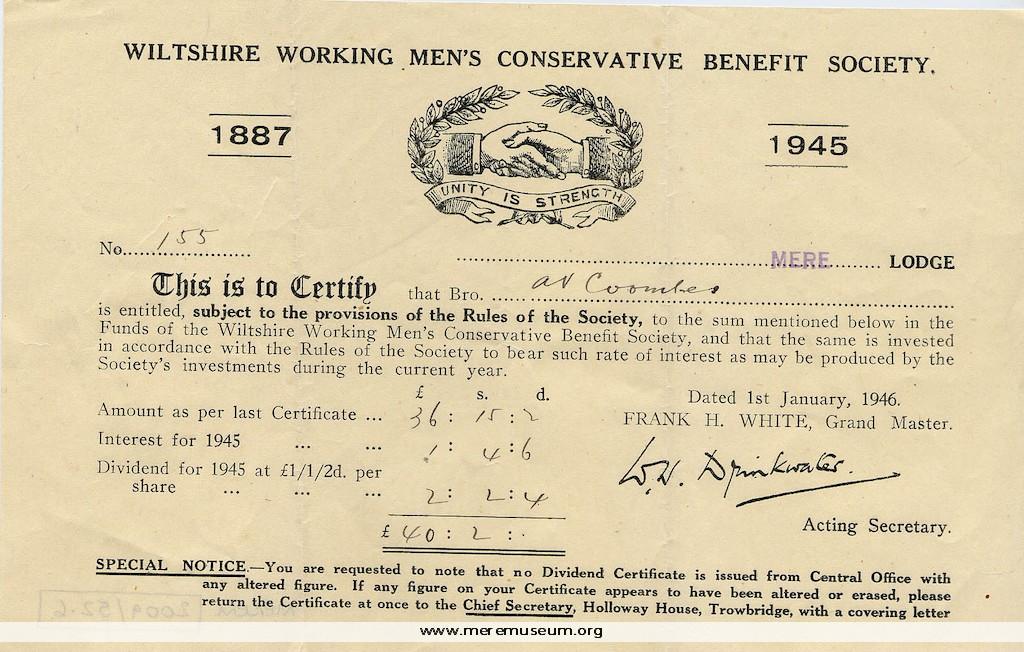 WILTSHIRE WORKING MEN'S CONSERVATIVE BENEFIT SOCIETY.
1887
1945
UNITY IS STRENGTH
No. 155
MERE LODGE
This is to Certify that Bro. AV Coombes
is entitled, subject to the provisions of the Rules of the Society, to the sum mentioned below in the
Funds of the Wiltshire Working Men's Conservative Benefit Society, and that the same is invested
in accordance with the Rules of the Society to bear such rate of interest as may be produced by the
Society's investments during the current year.
£ s. d.
Amount as per last Certificate ... 36 : 15 : 2
Interest for 1945 ... ... 1 : 4 : 6
Dividend for 1945 at £1/1/2d. per
share ... ... ... 2 : 2 : 4
£ 40 : 2 : .
Dated 1st January, 1946.
FRANK H. WHITE, Grand Master.
W.H. Drinkwater.
Acting Secretary.
SPECIAL NOTICE.—You are requested to note that no Dividend Certificate is issued from Central Office with
any altered figure. If any figure on your Certificate appears to have been altered or erased, please
return the Certificate at once to the Chief Secretary, Holloway House, Trowbridge, with a covering letter
www.meremuseum.org